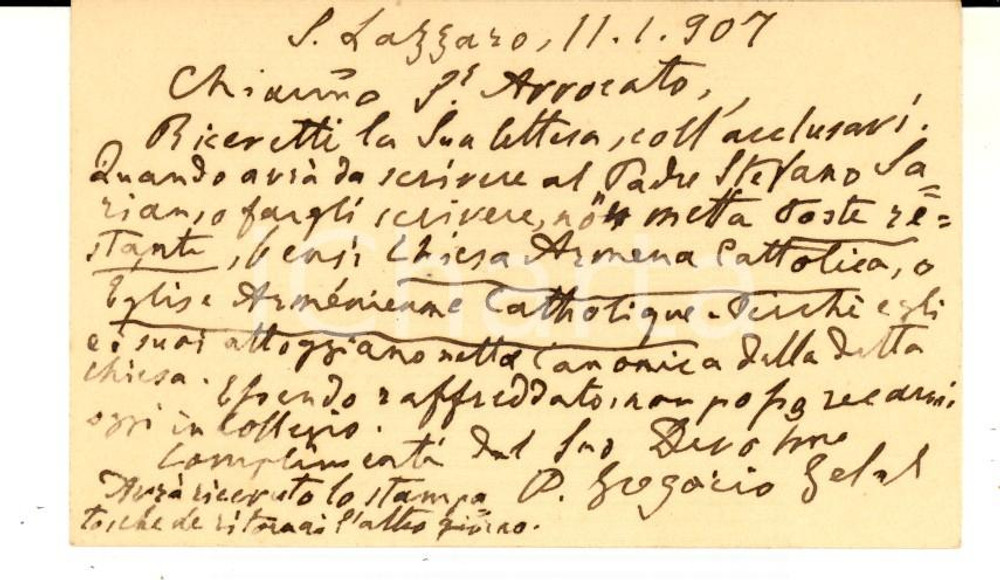 S. Lazzaro, 11.1.907
Chiarmo Sr. Avvocato,
Ricevetti la Sua lettera, coll'acclusavi.
Quando avrà da scrivere al Padre Stefano Sa=
rian, o fargli scrivere, non metta Poste re=
stante, bensì Chiesa Armena Cattolica, o
Eglise Arménienne Catholique. Perchè egli
e i suoi alloggiano nella Canonica della detta
chiesa. Essendo raffreddato, non posso recarmi
oggi in Collegio.
Complimenti dal Suo Devotmo
P. Gregorio
Avrà ricevuto lo stampa
to, che le ritornai l'altro giorno.